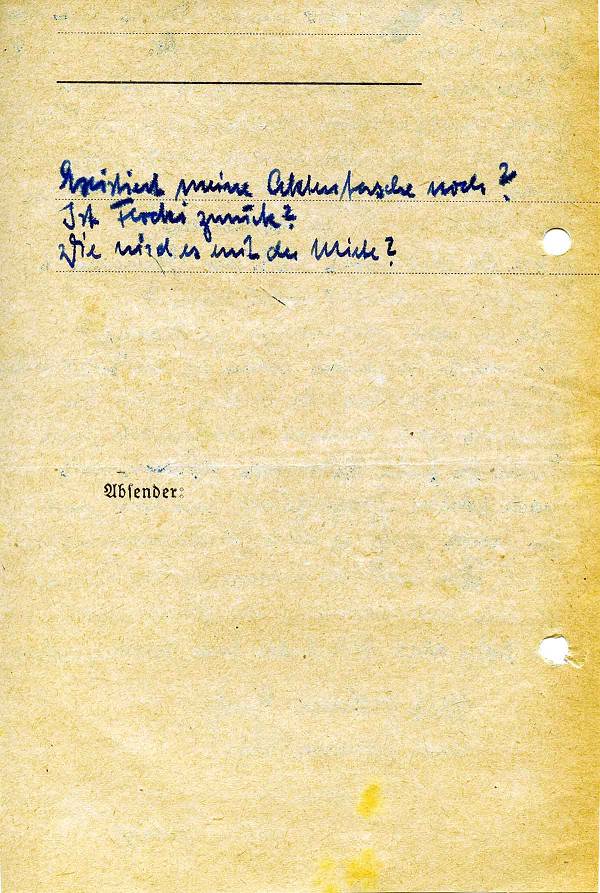 Existiert meine Aktentasche noch?
Ist Flocki zurück?
Wie wird es mit der Miete?
Absender: